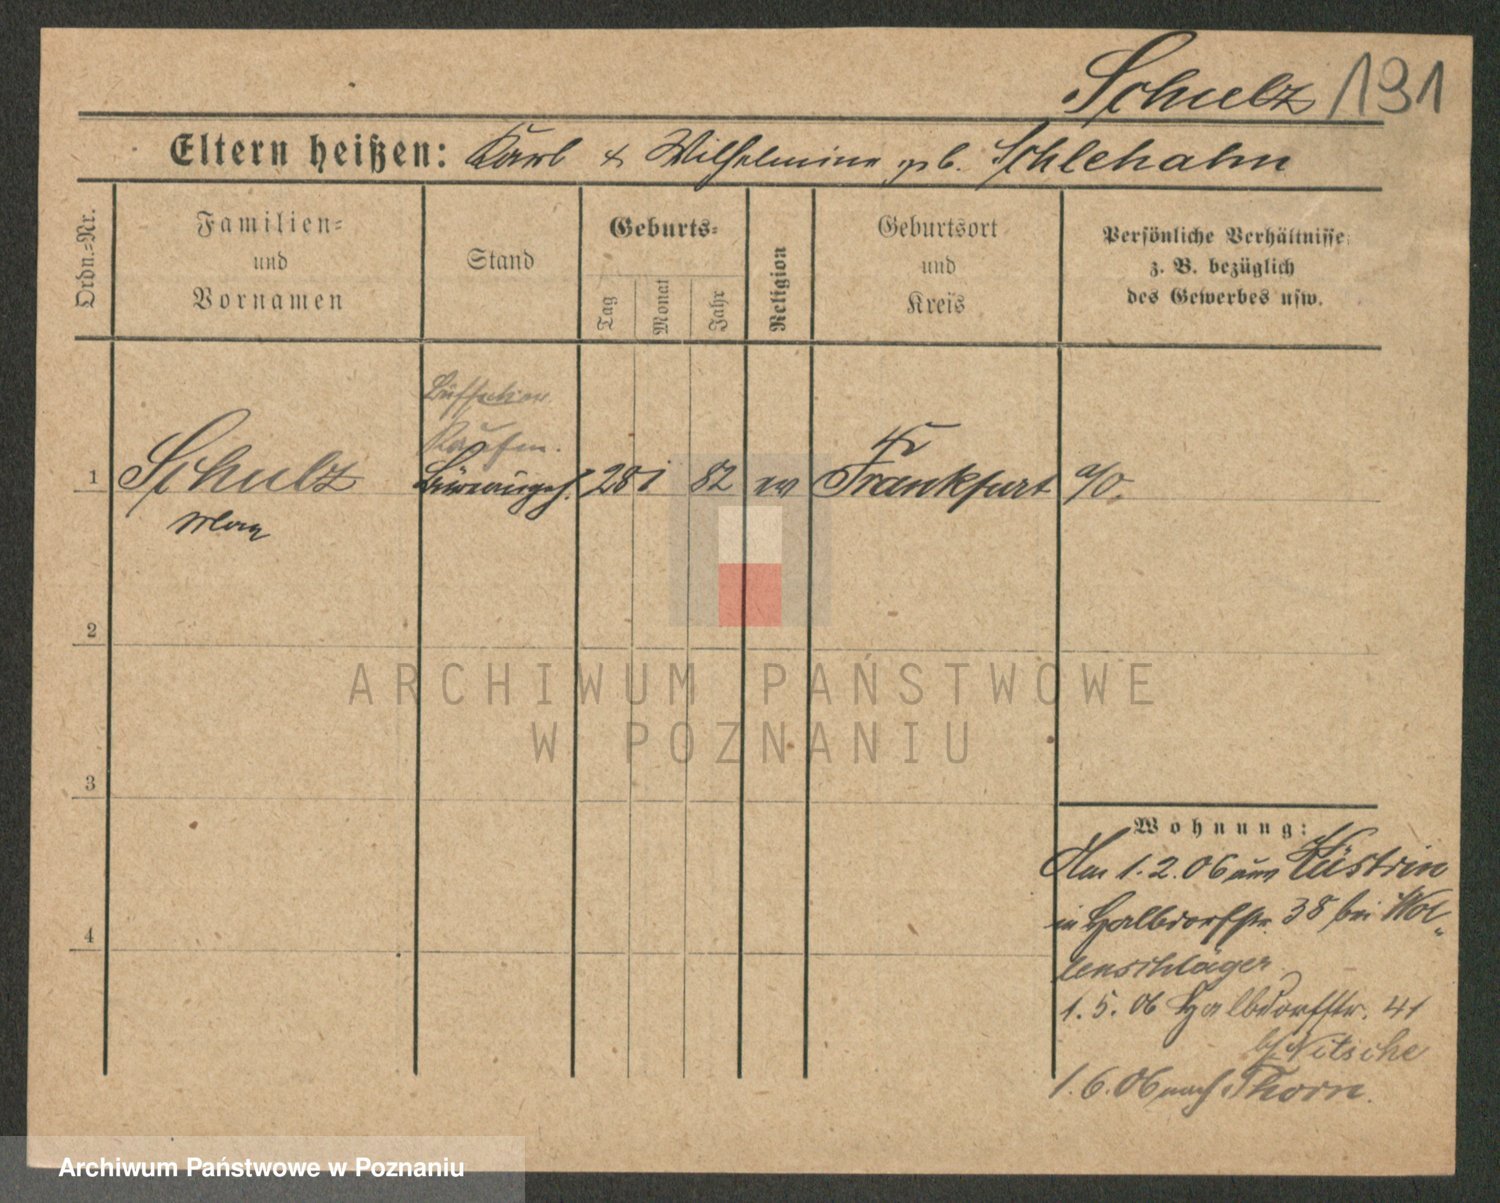 Schulz 191
Eltern heißen: Karl & Wilhelmine geb. Schlehahn
Ordn.=Nr.
Familien=
und
Vornamen
Stand
Geburts=
Tag
Monat
Jahr
Religion
Geburtsort
und
Kreis
Persönliche Verhältnisse
z. B. bezüglich
des Gewerbes usw.
Kaufm.
1 Schulz Büreaugeh. 28 1 82 ev Frankfurt a/O.
Max
2
3
4
Wohnung:
Am 1.2.06 aus Küstrin
in Halbdorfstr. 38 bei Wol-
lenschläger
1.5.06 Halbdorfstr. 41
bei Nitsche
1.6.06 nach Thorn.
ARCHIWUM PAŃSTWOWE
W POZNANIU
Archiwum Państwowe w Poznaniu